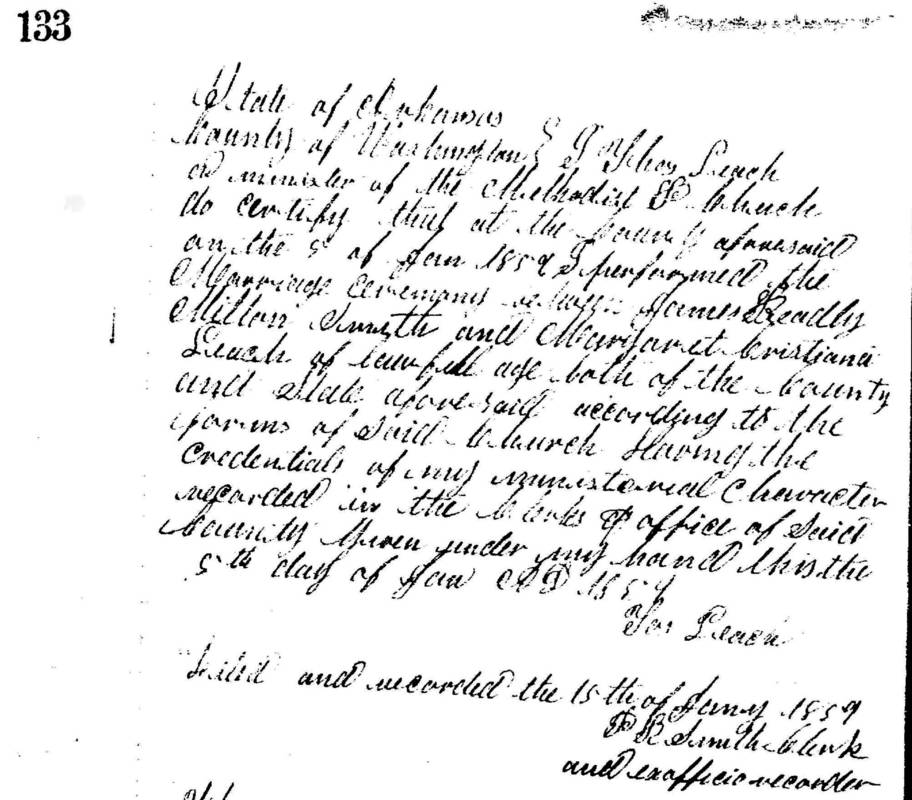 133
State of Arkansas
County of Washington } I Thos Leach
a minister of the Methodist P Church
do certify that at the County aforesaid
on the 5 of Jan 1859 I performed the
Marriage ceremony between James Readly
Milton Smith and Margaret Cristiana
Leach of lawfull age both of the County
and State aforesaid according to the
forms of Said Church Having the
Credentials of my ministerial Character
recorded in the Clerks office of Said
County Given under my hand this the
5th day of Jan AD 1859
Leach
and recorded the 15th of Jany 1859
P R Smith Clerk
and exofficio recorder